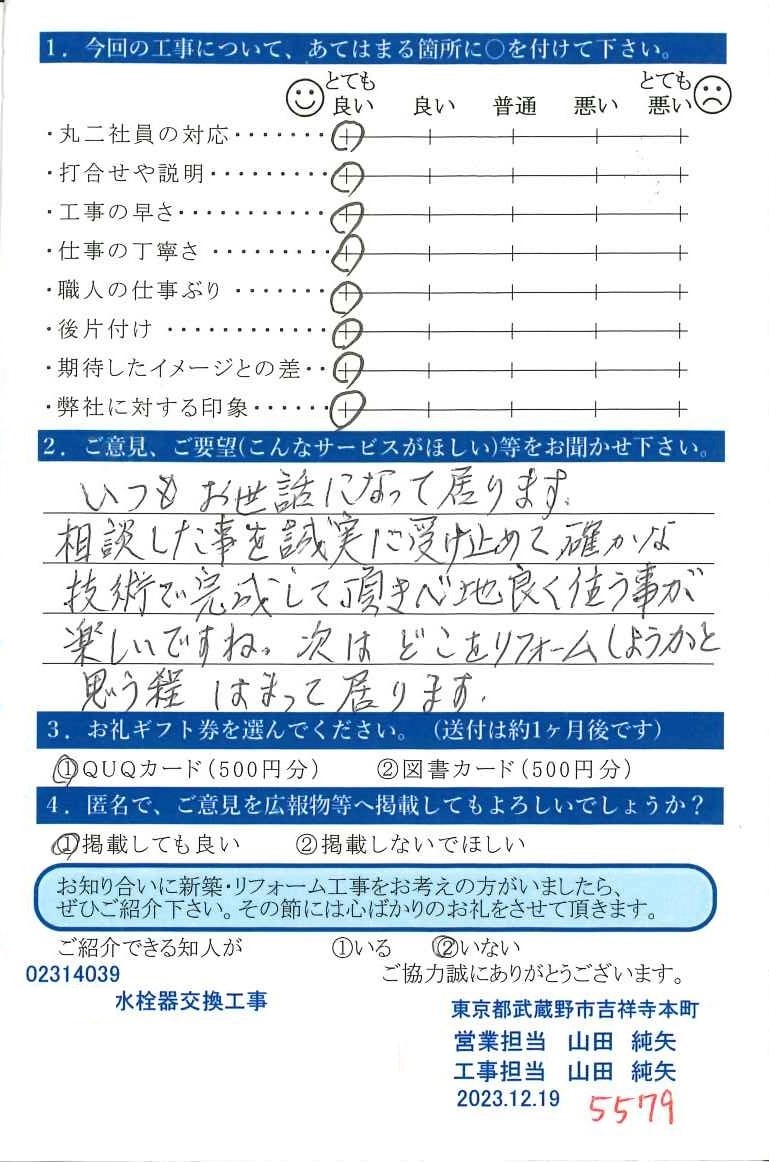 1．今回の工事について、あてはまる箇所に○を付けて下さい。
とても良い　良い　普通　悪い　とても悪い
・丸二社員の対応・・・・・・・
・打合せや説明・・・・・・・・・
・工事の早さ・・・・・・・・・・・
・仕事の丁寧さ・・・・・・・・・
・職人の仕事ぶり・・・・・・・
・後片付け・・・・・・・・・・・・
・期待したイメージとの差・・
・弊社に対する印象・・・・・・
2．ご意見、ご要望(こんなサービスがほしい)等をお聞かせ下さい。
いつもお世話になって居ります。
相談した事を誠実に受け止めて確かな
技術で完成して頂き心地良く住う事が
楽しいですね。次はどこをリフォームしようかと
思う程はまって居ります。
3．お礼ギフト券を選んでください。（送付は約1ヶ月後です）
①QUQカード（500円分）　②図書カード（500円分）
4．匿名で、ご意見を広報物等へ掲載してもよろしいでしょうか？
①掲載しても良い　②掲載しないでほしい
お知り合いに新築・リフォーム工事をお考えの方がいましたら、
ぜひご紹介下さい。その節には心ばかりのお礼をさせて頂きます。
ご紹介できる知人が　①いる　②いない
02314039　ご協力誠にありがとうございます。
水栓器交換工事
東京都武蔵野市吉祥寺本町
営業担当　山田　純矢
工事担当　山田　純矢
2023.12.19　5579